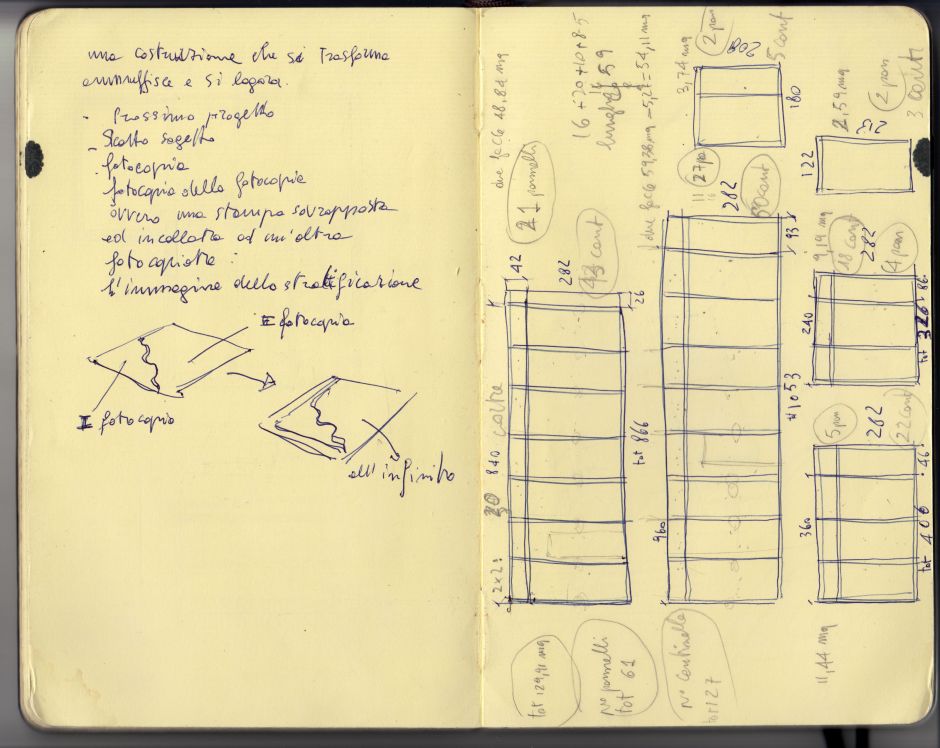 una costruzione che si trasforma
ammuffisce e si logora.
- Prossimo progetto
- Scelto sogetto
fotocopia
fotocopia della fotocopia
ovvero una stampa sovrapposta
ed incollata ad un'altra
fotocopiata
l'immagine della stratificazione
II fotocopia
I fotocopia
all'infinito
due facce 48,84 mq
21 pannelli
42
282
43 cont
26
840
tot 866
2x21
16+20+10+8+5
59
due facce 59,38 mq - 5,27 = 54,11 mq
11
27 pa
282
50 cont
93
960
1053
3,74 mq
2 pan
208
5 cont
180
2,59 mq
2 pan
212
3 conti
122
9,19 mq
18 cont
282
4 pan
240
86
tot 326
5 pan
282
22 cont
360
46
tot 406
11,44 mq
tot 129,91 mq
N° pannelli
tot 61
N° continelle
tot 127